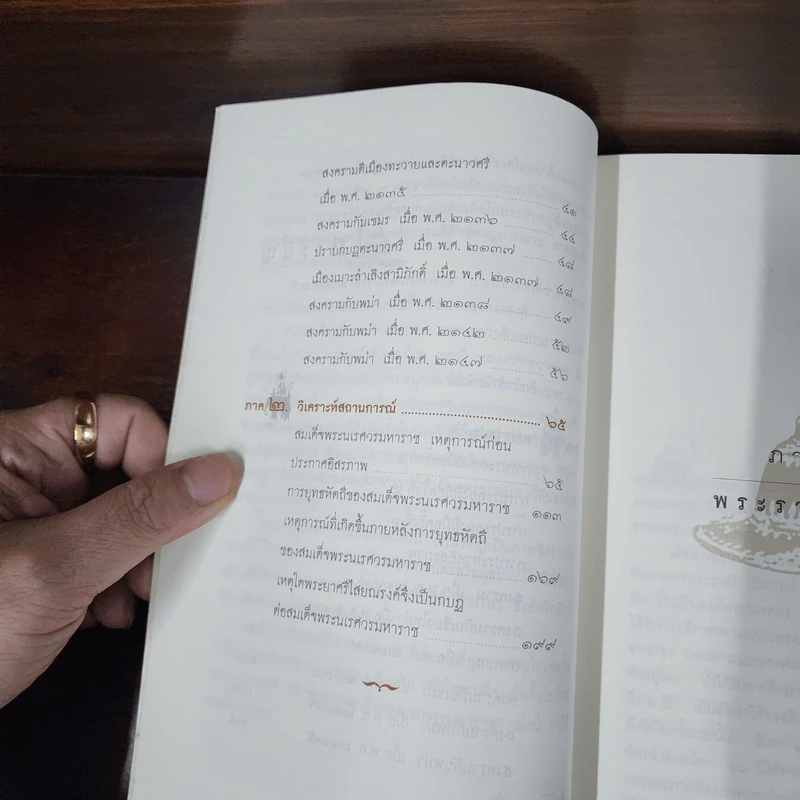 สงครามตีเมืองทะวายและตะนาวศรี
เมื่อ พ.ศ. ๒๑๓๕ ๔๑
สงครามกับเขมร เมื่อ พ.ศ. ๒๑๓๖ ๔๔
ปราบกบฏตะนาวศรี เมื่อ พ.ศ. ๒๑๓๗ ๔๘
เมืองเมาะลำเลิงสามิภักดิ์ เมื่อ พ.ศ. ๒๑๓๗ ๔๘
สงครามกับพม่า เมื่อ พ.ศ. ๒๑๓๘ ๔๙
สงครามกับพม่า เมื่อ พ.ศ. ๒๑๔๒ ๕๒
สงครามกับพม่า เมื่อ พ.ศ. ๒๑๔๗ ๕๖
ภาค ๒. วิเคราะห์สถานการณ์ ๖๕
สมเด็จพระนเรศวรมหาราช เหตุการณ์ก่อน
ประกาศอิสรภาพ ๖๕
การยุทธหัตถีของสมเด็จพระนเรศวรมหาราช ๑๑๓
เหตุการณ์ที่เกิดขึ้นภายหลังการยุทธหัตถี
ของสมเด็จพระนเรศวรมหาราช ๑๖๙
เหตุใดพระยาศรีไสยณรงค์จึงเป็นกบฏ
ต่อสมเด็จพระนเรศวรมหาราช ๑๙๙